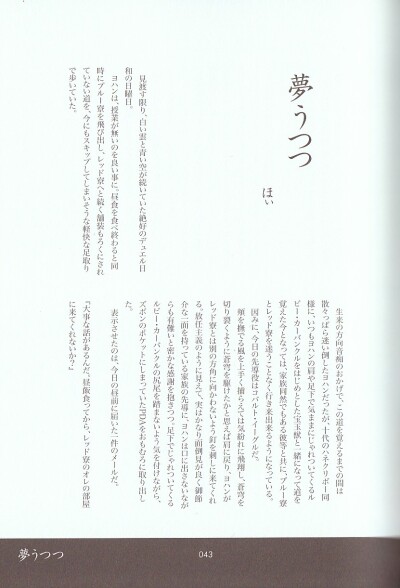 夢うつつ
ほい
見渡す限り、白い雲と青い空が続いていた絶好のデュエル日
和の日曜日。
ヨハンは、授業が無いのを良い事に、昼食を食べ終わると同
時にブルー寮を飛び出し、レッド寮へと続く舗装もろくにされ
ていない道を、今にもスキップしてしまいそうな軽快な足取り
で歩いていた。
生来の方向音痴のおかげで、この道を覚えるまでの間は
散々っぱら迷い倒したヨハンだったが、十代のハネクリボー同
様に、いつもヨハンの肩や足下で気ままにじゃれついてくるル
ビー・カーバンクルをはじめとした宝玉獣と一緒になって道を
覚えた今となっては、家族同然でもある彼等と共に、ブルー寮
とレッド寮を違うことなく行き来出来るようになっている。
因みに、今日の先導役はコバルト・イーグルだ。
頬を撫でる風を上手く捕らえては気紛れに飛翔し、蒼穹を
切り裂くように蒼穹を駆けたかと思えば肩に戻り、ヨハンが
レッド寮とは別の方角に向かわないよう釘を刺しに来てくれ
る。放任主義のように見えて、実はかなり面倒見が良く御節
介な一面を持っている家族の先導に、ヨハンは口に出さないな
がらも有難いと密かな感謝を抱きつつ、足下でじゃれついてくる
ルビー・カーバンクルの尻尾を踏まないよう気を付けながら、
ズボンのポケットにしまっていたPDAをおもむろに取り出し
た。
表示させたのは、今日の昼前に届いた一件のメールだ。
『大事な話があるんだ。昼飯食ってから、レッド寮のオレの部屋
に来てくれないか?』
夢うつつ
043